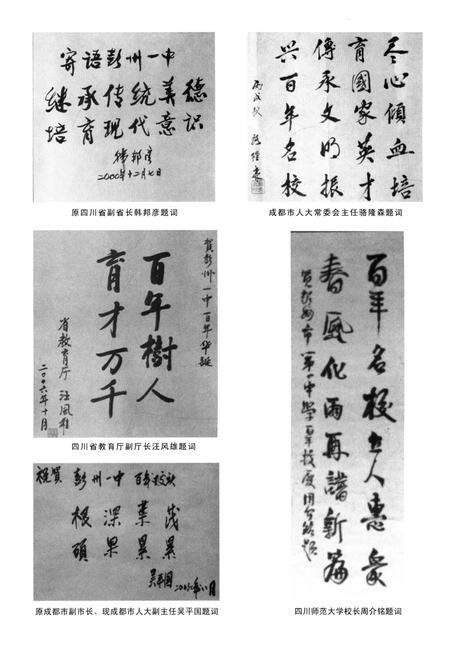 寄语彭州一中
继承传统美德
培育现代意识
韩邦彦
二〇〇〇年十二月七日
原四川省副省长韩邦彦题词
尽心倾血培
育国家英才
传承文明振
兴百年名校
丙戌秋
骆隆森
成都市人大常委会主任骆隆森题词
贺彭州一中百年华诞
百年树人
育才万千
省教育厅 汪风雄
二〇〇六年十月
四川省教育厅副厅长汪风雄题词
祝贺彭州一中百年校庆
根深叶茂
硕果累累
吴平国
原成都市副市长、现成都市人大副主任吴平国题词
百年名校士人惠众
春风化雨再谱新篇
四川师范大学校长周介铭题词